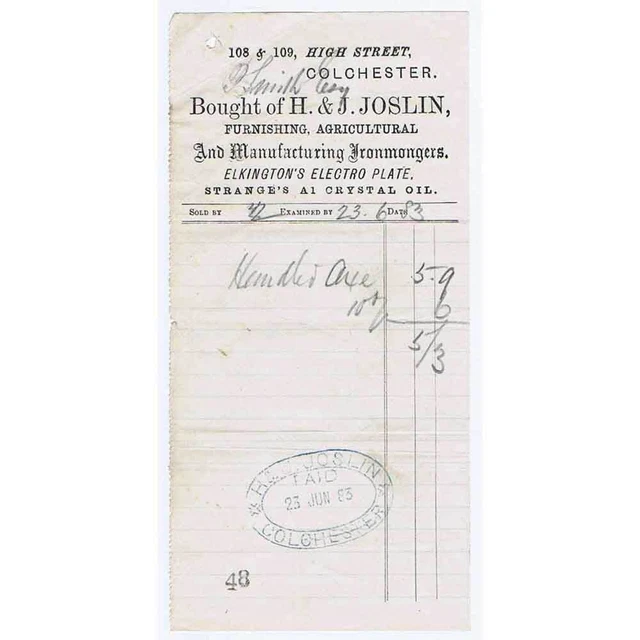 108 & 109, HIGH STREET,
COLCHESTER.
P Smith Esq
Bought of H. & J. JOSLIN,
FURNISHING, AGRICULTURAL
And Manufacturing Ironmongers.
ELKINGTON'S ELECTRO PLATE,
STRANGE'S A1 CRYSTAL OIL.
SOLD BY EXAMINED BY 23. 6 DATE 83
Handled Axe 5.9
10% 6
5/3
H & J. JOSLIN
PAID
23 JUN 83
COLCHESTER
48